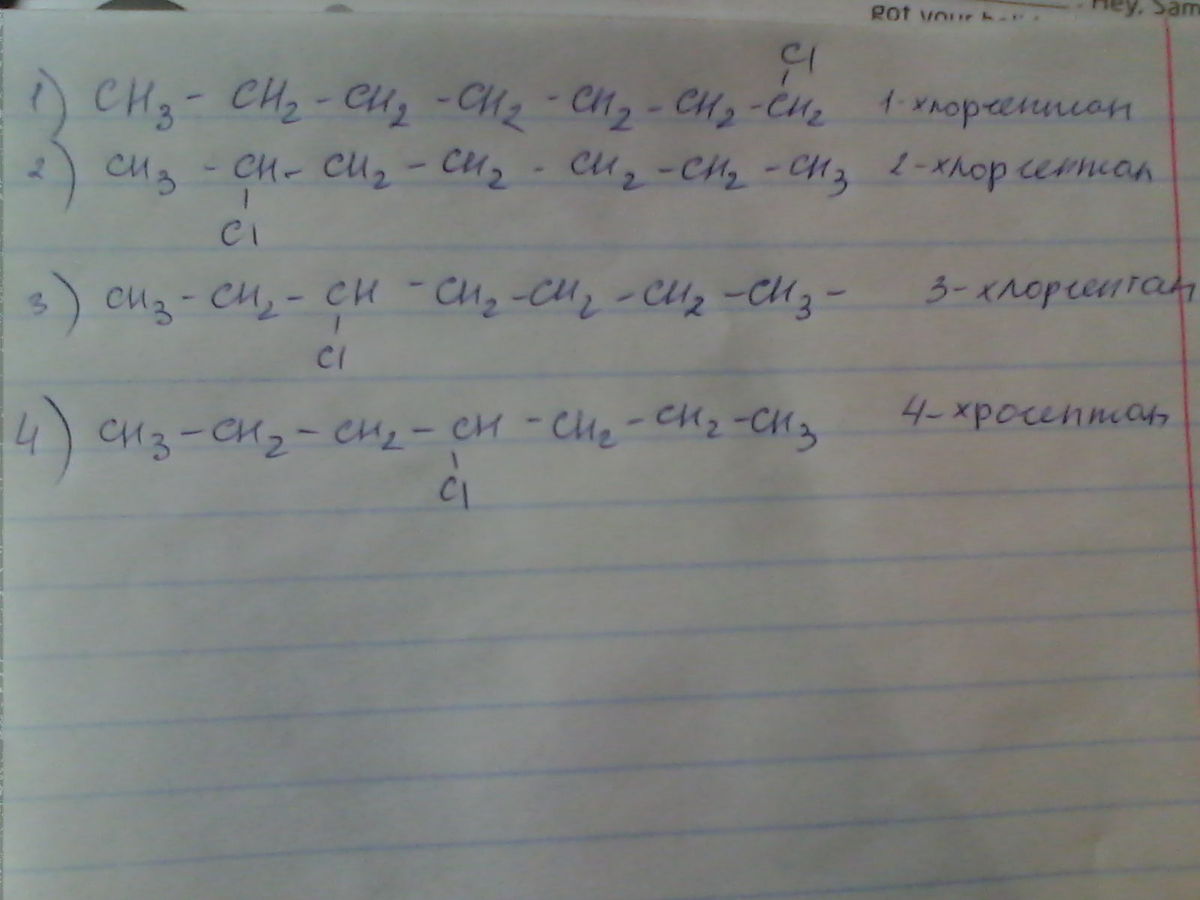 Hey, Sam
got your
Cl
1) CH3 - CH2 - CH2 - CH2 - CH2 - CH2 - CH2 1-хлоргептан
2) CH3 - CH - CH2 - CH2 - CH2 - CH2 - CH3 2-хлоргептан
Cl
3) CH3 - CH2 - CH - CH2 - CH2 - CH2 - CH3 - 3-хлоргептан
Cl
4) CH3 - CH2 - CH2 - CH - CH2 - CH2 - CH3 4-хрогептан
Cl